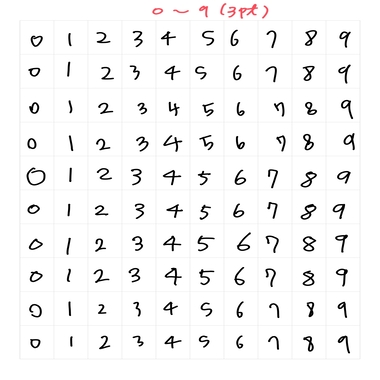 0 ~ 9 (3pt)
0 1 2 3 4 5 6 7 8 9
0 1 2 3 4 5 6 7 8 9
0 1 2 3 4 5 6 7 8 9
0 1 2 3 4 5 6 7 8 9
0 1 2 3 4 5 6 7 8 9
0 1 2 3 4 5 6 7 8 9
0 1 2 3 4 5 6 7 8 9
0 1 2 3 4 5 6 7 8 9
0 1 2 3 4 5 6 7 8 9
0 1 2 3 4 5 6 7 8 9